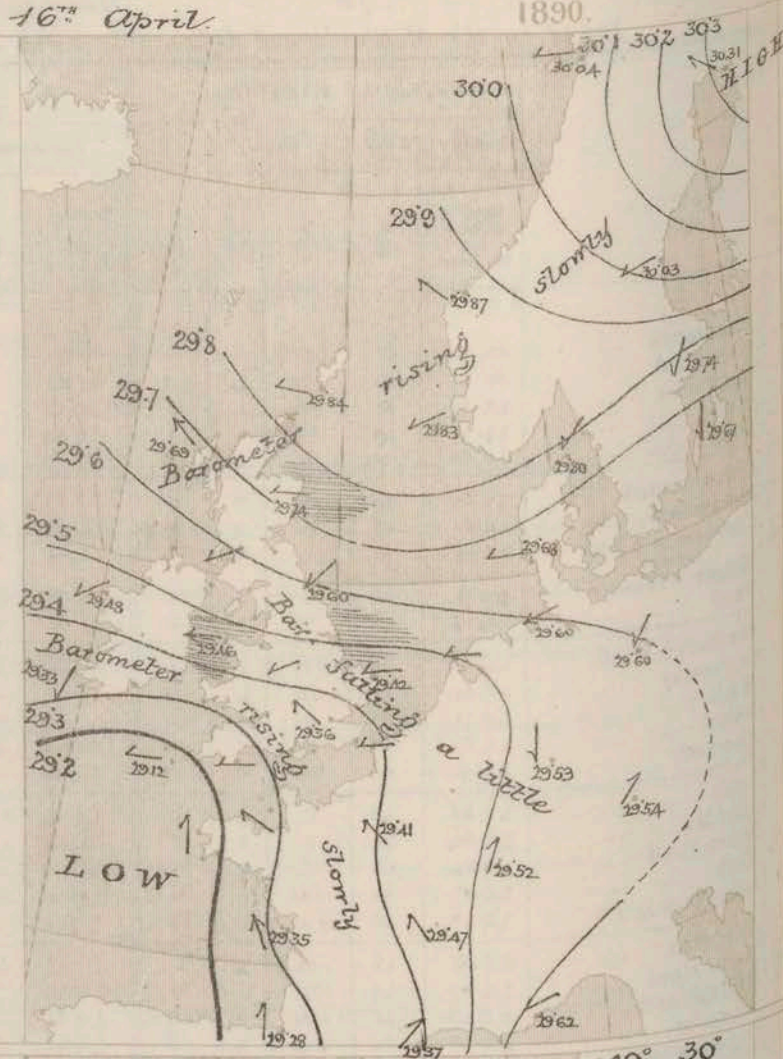 16th April.
1890.
30·1 30·2 30·3
30·04
30·31
HIGH
30·0
29·9
slowly
30·03
29·87
29·8
rising
29·74
29·7
29·84
29·83
29·61
29·69
Barometer
29·80
29·6
29·74
29·68
29·5
29·60
29·4
29·48
Bar.
29·60
29·46
29·60
Barometer
falling
29·42
29·33
29·3
rising
29·36
a
29·2
29·12
little
29·53
29·54
29·41
LOW
slowly
29·52
29·35
29·47
29·62
29·28
29·37
30°